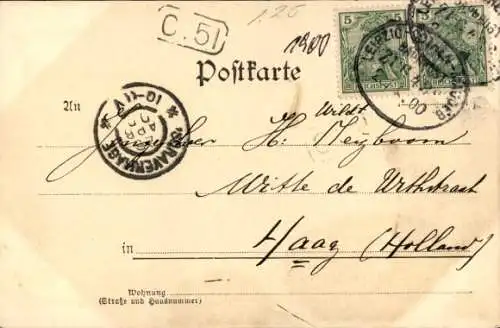 C.51
1.25
1900
5 5
Postkarte
An
Wildt
H: Meyboom
'S GRAVENHAGE
10-11V
APR
Witte de Withstraat
in Haag (Holland)
Wohnung
(Straße und Hausnummer)